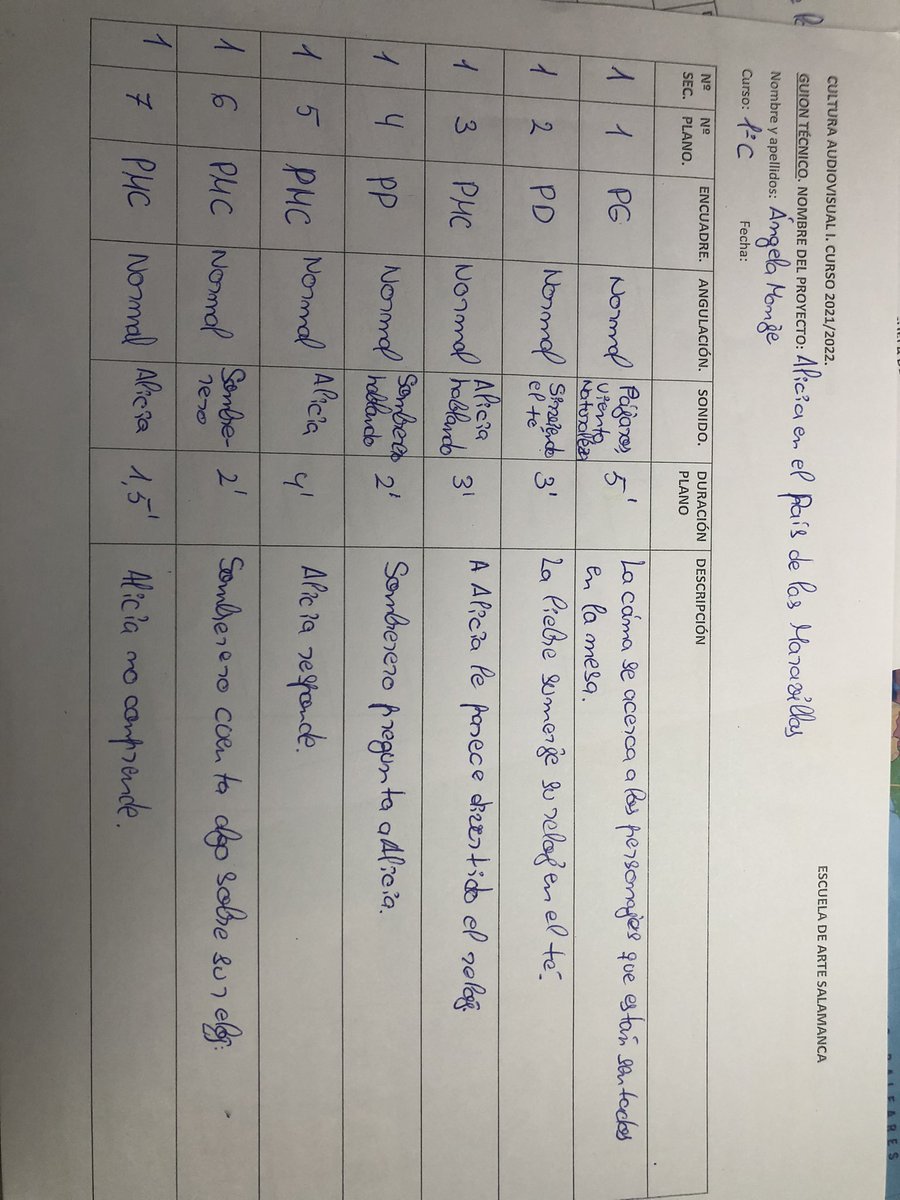 CULTURA AUDIOVISUAL I. CURSO 2021/2022.
ESCUELA DE ARTE SALAMANCA
GUION TÉCNICO. NOMBRE DEL PROYECTO: Alicia en el País de las Maravillas
Nombre y apellidos: Ángela Monge
Curso: 1º C Fecha:
Nº SEC. Nº PLANO. ENCUADRE. ANGULACIÓN. SONIDO. DURACIÓN PLANO DESCRIPCIÓN
1 1 PG Normal Pájaros, viento Naturaleza 5' La cáma se acerca a los personajes que están sentados en la mesa.
1 2 PD Normal Sirviendo el té 3' La liebre sumerge su reloj en el té.
1 3 PMC Normal Alicia hablando 3' A Alicia le parece divertido el reloj.
1 4 PP Normal Sombrerero hablando 2' Sombrerero pregunta a Alicia.
1 5 PMC Normal Alicia 4' Alicia responde.
1 6 PMC Normal Sombre-rero 2' Sombrerero cuenta algo sobre su reloj.
1 7 PMC Normal Alicia 1,5' Alicia no comprende.
BALEARES